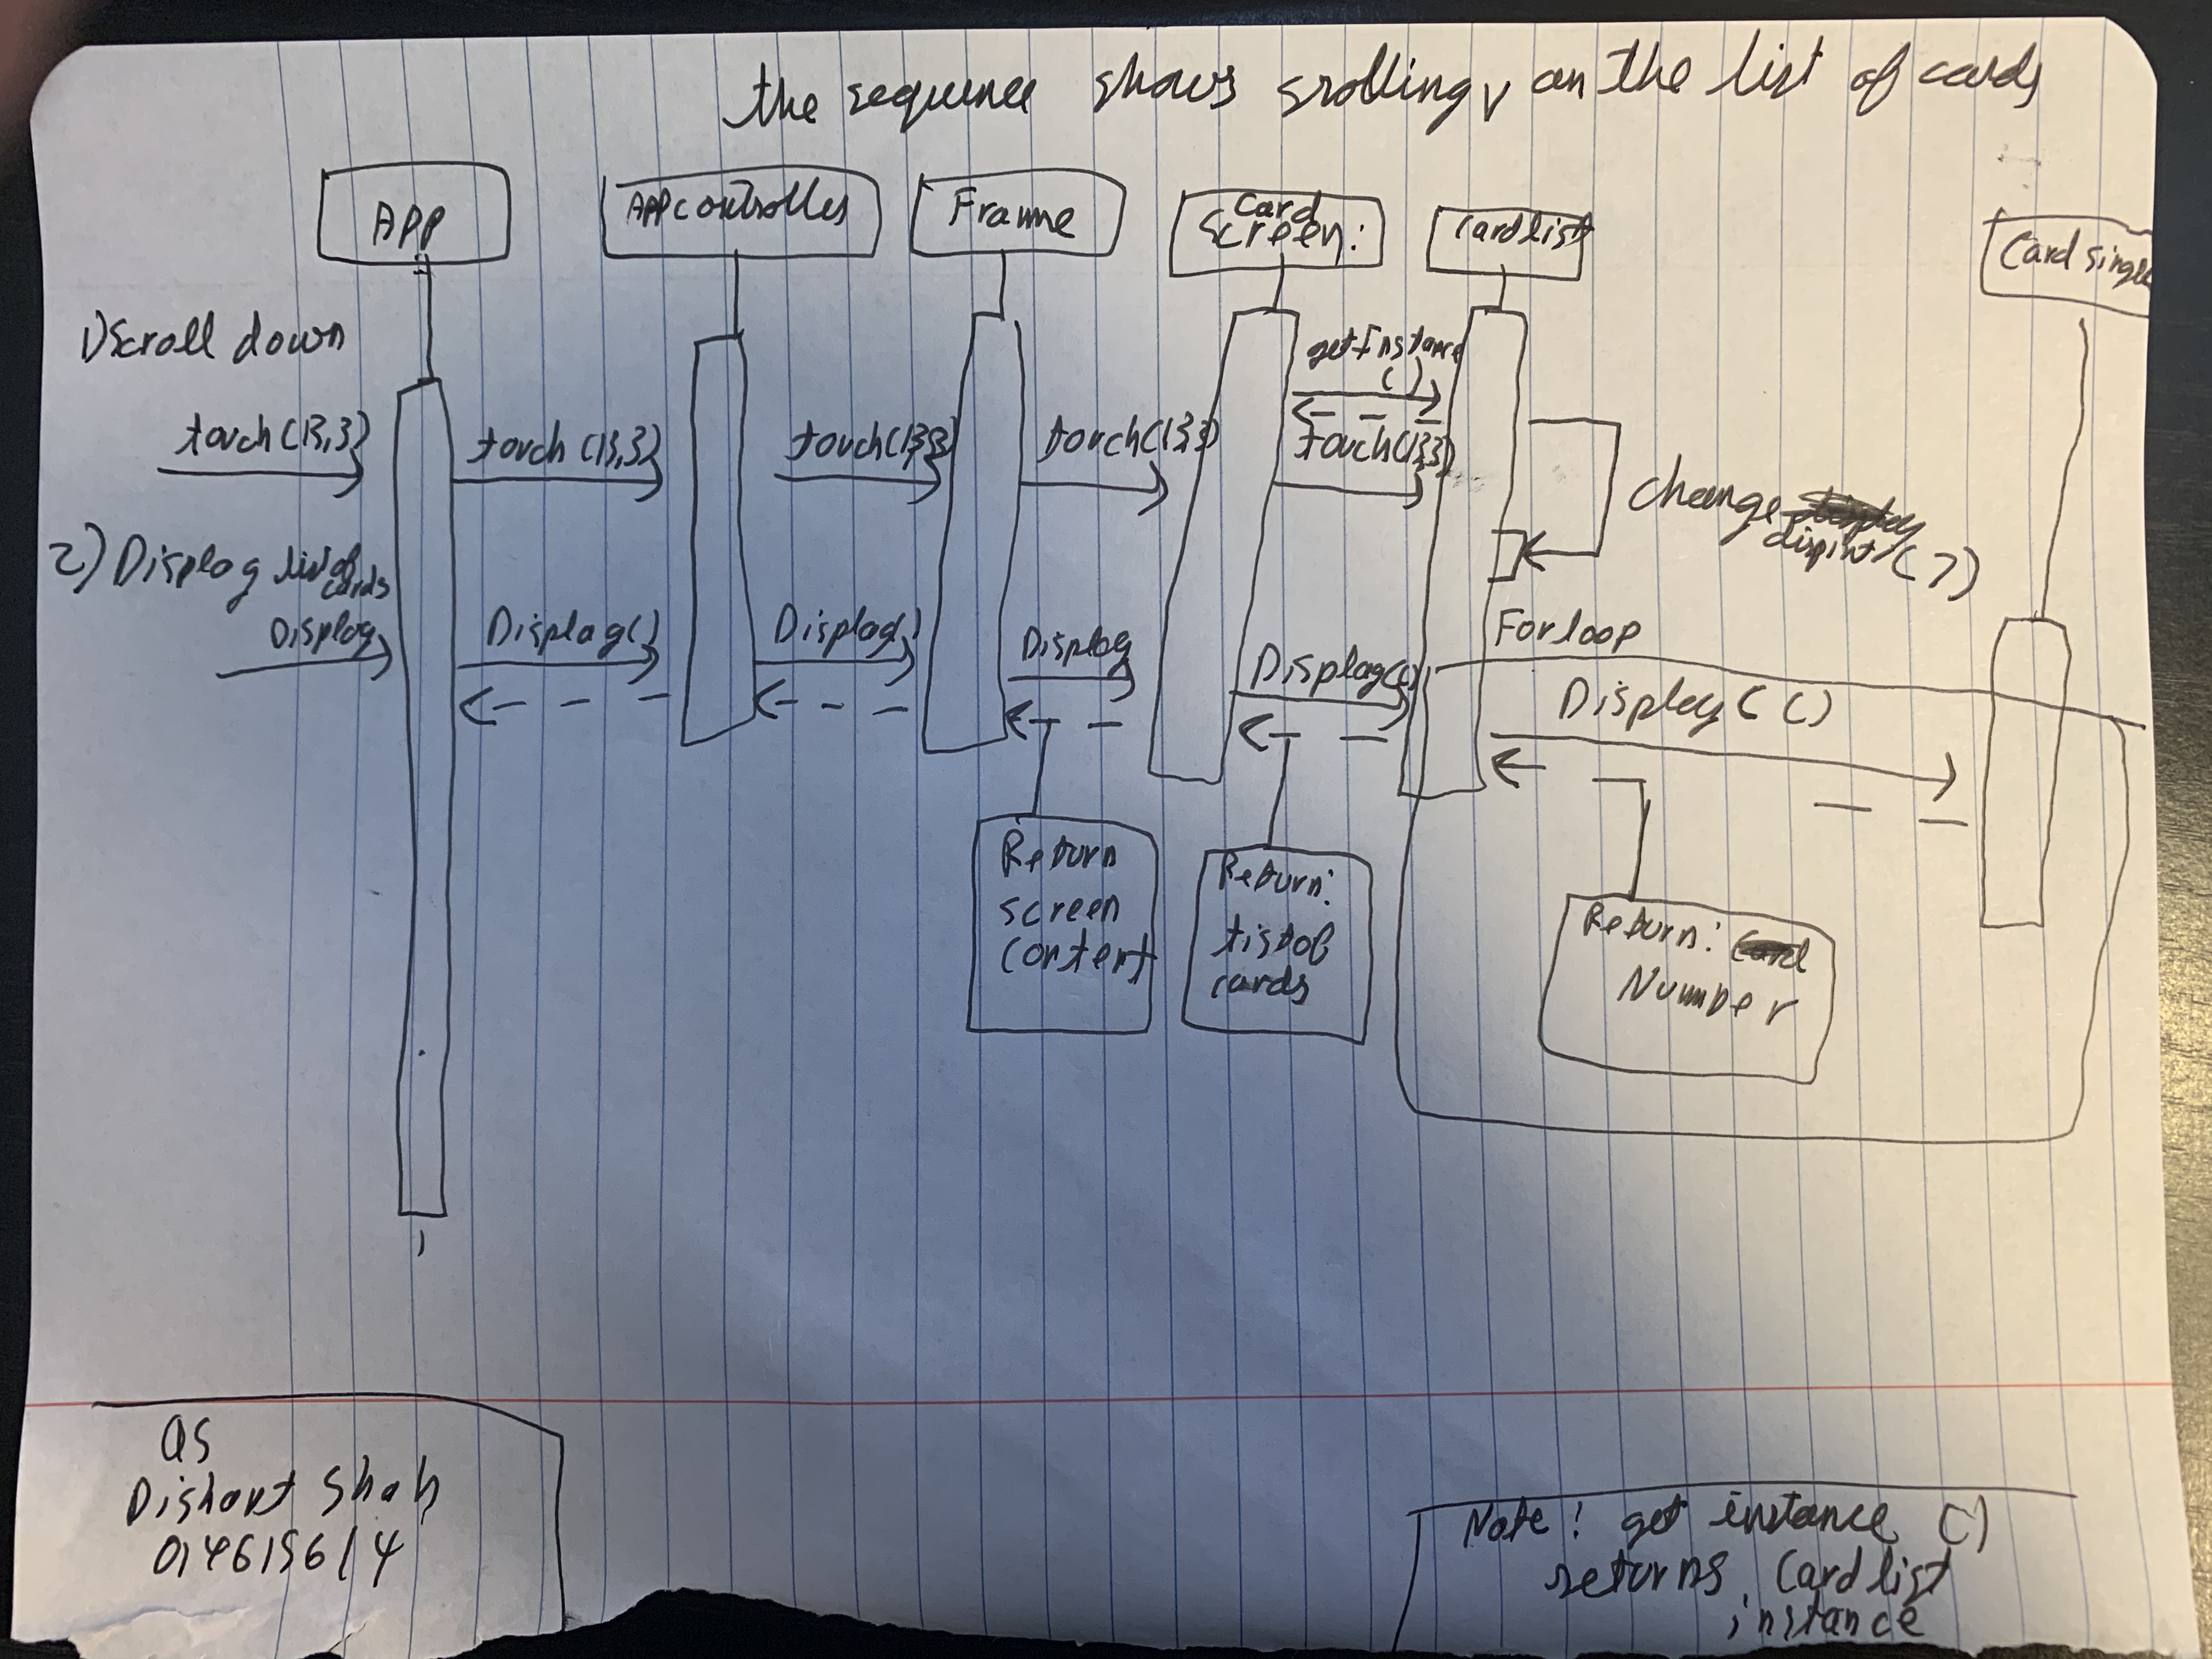 the sequence shows srolling on the list of cards
APP
APPcontroller
Frame
Card
Screen:
Cardlist
Card single
1) Scroll down
getInstance
()
touch(13,3)
touch(13,3)
touch(13,3)
touch(13,3)
touch(13,3)
change
(7)
2) Display list of
cards
Display
Display()
Display()
Display
Display()
For loop
Display(()
Return
screen
content
Return:
list of
cards
Return: Card
Number
Q5
Dishant Shah
014615614
Note: get instance ()
returns Cardlist
instance